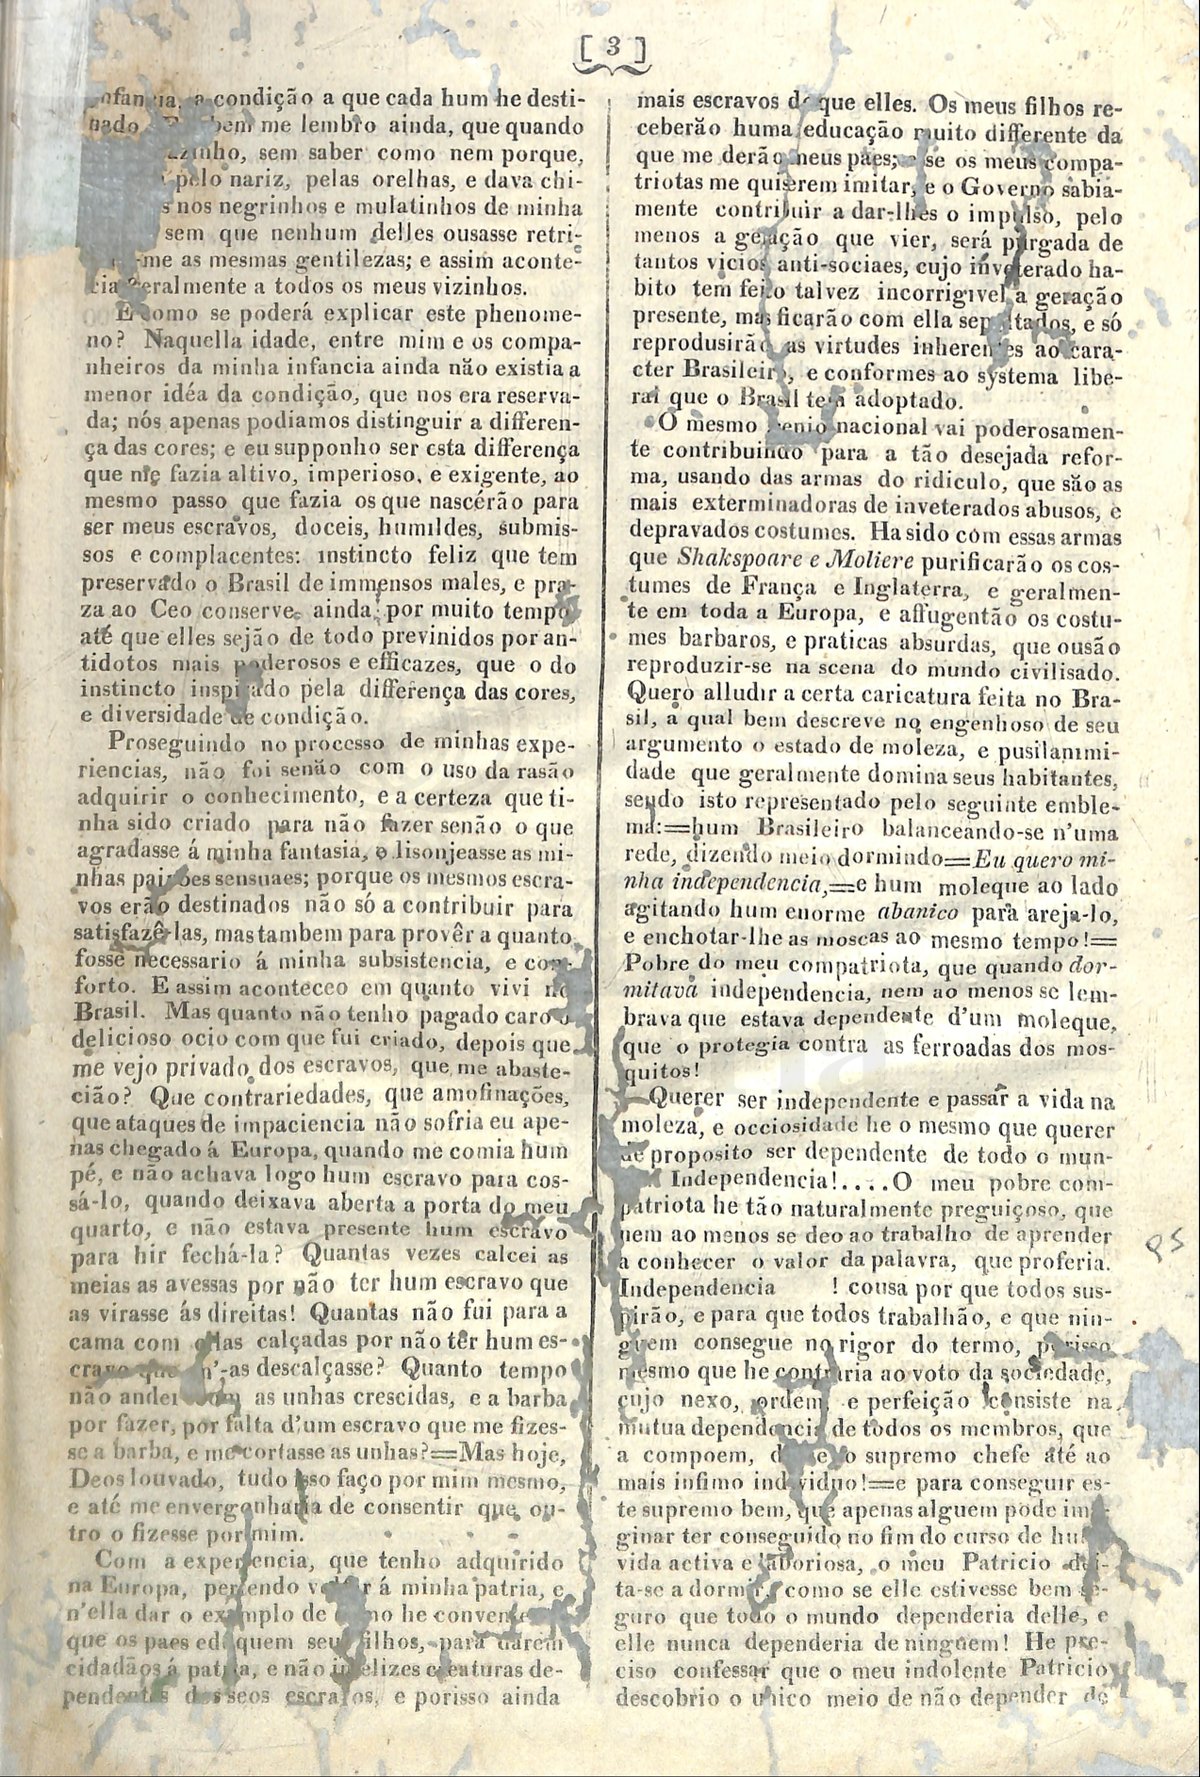 [ 3 ]
a condição a que cada hum he desti-
bem me lembro ainda, que quando
sem saber como nem porque,
pelo nariz, pelas orelhas, e dava chi-
nos negrinhos e mulatinhos de minha
sem que nenhum delles ousasse retri-
-me as mesmas gentilezas; e assim aconte-
geralmente a todos os meus vizinhos.
E como se poderá explicar este phenome-
no? Naquella idade, entre mim e os compa-
nheiros da minha infancia ainda não existia a
menor idéa da condição, que nos era reserva-
da; nós apenas podiamos distinguir a differen-
ça das cores; e eu supponho ser esta differença
que me fazia altivo, imperioso, e exigente, ao
mesmo passo que fazia os que nascérão para
ser meus escravos, doceis, humildes, submis-
sos e complacentes: instincto feliz que tem
preservado o Brasil de immensos males, e pra-
za ao Ceo conserve ainda por muito tempo
até que elles sejão de todo previnidos por an-
tidotos mais poderosos e efficazes, que o do
instincto inspirado pela differença das cores,
e diversidade de condição.
Proseguindo no processo de minhas expe-
riencias, não foi senão com o uso da rasão
adquirir o conhecimento, e a certeza que ti-
nha sido criado para não fazer senão o que
agradasse á minha fantasia, e lisonjeasse as mi-
nhas paixões sensuaes; porque os mesmos escra-
vos erão destinados não só a contribuir para
satisfazê-las, mas tambem para provêr a quanto
fosse necessario á minha subsistencia, e con-
forto. E assim aconteceo em quanto vivi no
Brasil. Mas quanto não tenho pagado caro o
delicioso ocio com que fui criado, depois que
me vejo privado dos escravos, que me abaste-
cião? Que contrariedades, que amofinações,
que ataques de impaciencia não sofria eu ape-
nas chegado á Europa, quando me comia hum
pé, e não achava logo hum escravo para cos-
sá-lo, quando deixava aberta a porta do meu
quarto, e não estava presente hum escravo
para hir fechá-la? Quantas vezes calcei as
meias as avessas por não ter hum escravo que
as virasse ás direitas! Quantas não fui para a
cama com ellas calçadas por não ter hum es-
cravo que m'-as descalçasse? Quanto tempo
não andei com as unhas crescidas, e a barba
por fazer, por falta d'um escravo que me fizes-
se a barba, e me cortasse as unhas?=Mas hoje,
Deos louvado, tudo isso faço por mim mesmo,
e até me envergonharia de consentir que ou-
tro o fizesse por mim.
Com a experiencia, que tenho adquirido
na Europa, pertendo voltar á minha patria, e
n'ella dar o exemplo de como he conveniente
que os paes eduquem seus filhos, para darem
cidadãos á patria, e não infelizes creaturas de-
pendentes dos seos escravos, e porisso ainda
mais escravos do que elles. Os meus filhos re-
ceberão huma educação muito differente da
que me derão meus paes; e se os meus compa-
triotas me quiserem imitar, e o Governo sabia-
mente contribuir a dar-lhes o impulso, pelo
menos a geração que vier, será purgada de
tantos vicios anti-sociaes, cujo inveterado ha-
bito tem feito talvez incorrigivel a geração
presente, mas ficarão com ella sepultados, e só
reprodusirão as virtudes inherentes ao cara-
cter Brasileiro, e conformes ao systema libe-
ral que o Brasil tem adoptado.
O mesmo genio nacional vai poderosamen-
te contribuindo para a tão desejada refor-
ma, usando das armas do ridiculo, que são as
mais exterminadoras de inveterados abusos, e
depravados costumes. Ha sido com essas armas
que Shakspoare e Moliere purificarão os cos-
tumes de França e Inglaterra, e geralmen-
te em toda a Europa, e affugentão os costu-
mes barbaros, e praticas absurdas, que ousão
reproduzir-se na scena do mundo civilisado.
Quero alludir a certa caricatura feita no Bra-
sil, a qual bem descreve no engenhoso de seu
argumento o estado de moleza, e pusilanimi-
dade que geralmente domina seus habitantes,
sendo isto representado pelo seguinte emble-
ma:=hum Brasileiro balanceando-se n'uma
rede, dizendo meio dormindo=Eu quero mi-
nha independencia,=e hum moleque ao lado
agitando hum enorme abanico para areja-lo,
e enchotar-lhe as moscas ao mesmo tempo!=
Pobre do meu compatriota, que quando dor-
mitava independencia, nem ao menos se lem-
brava que estava dependente d'um moleque,
que o protegia contra as ferroadas dos mos-
quitos!
Querer ser independente e passar a vida na
moleza, e occiosidade he o mesmo que querer
de proposito ser dependente de todo o mun-
Independencia!....O meu pobre com-
patriota he tão naturalmente preguiçoso, que
nem ao menos se deo ao trabalho de aprender
a conhecer o valor da palavra, que proferia.
Independencia ! cousa por que todos sus-
pirão, e para que todos trabalhão, e que nin-
guem consegue no rigor do termo, porisso
mesmo que he contraria ao voto da sociedade,
cujo nexo, ordem, e perfeição consiste na
mutua dependencia de todos os membros, que
a compoem, desde o supremo chefe até ao
mais infimo individuo!=e para conseguir es-
te supremo bem, que apenas alguem pode ima-
ginar ter conseguido no fim do curso de huma
vida activa e laboriosa, o meu Patricio dei-
ta-se a dormir, como se elle estivesse bem se-
guro que todo o mundo dependeria delle, e
elle nunca dependeria de ninguem! He pre-
ciso confessar que o meu indolente Patricio
descobrio o unico meio de não depender de